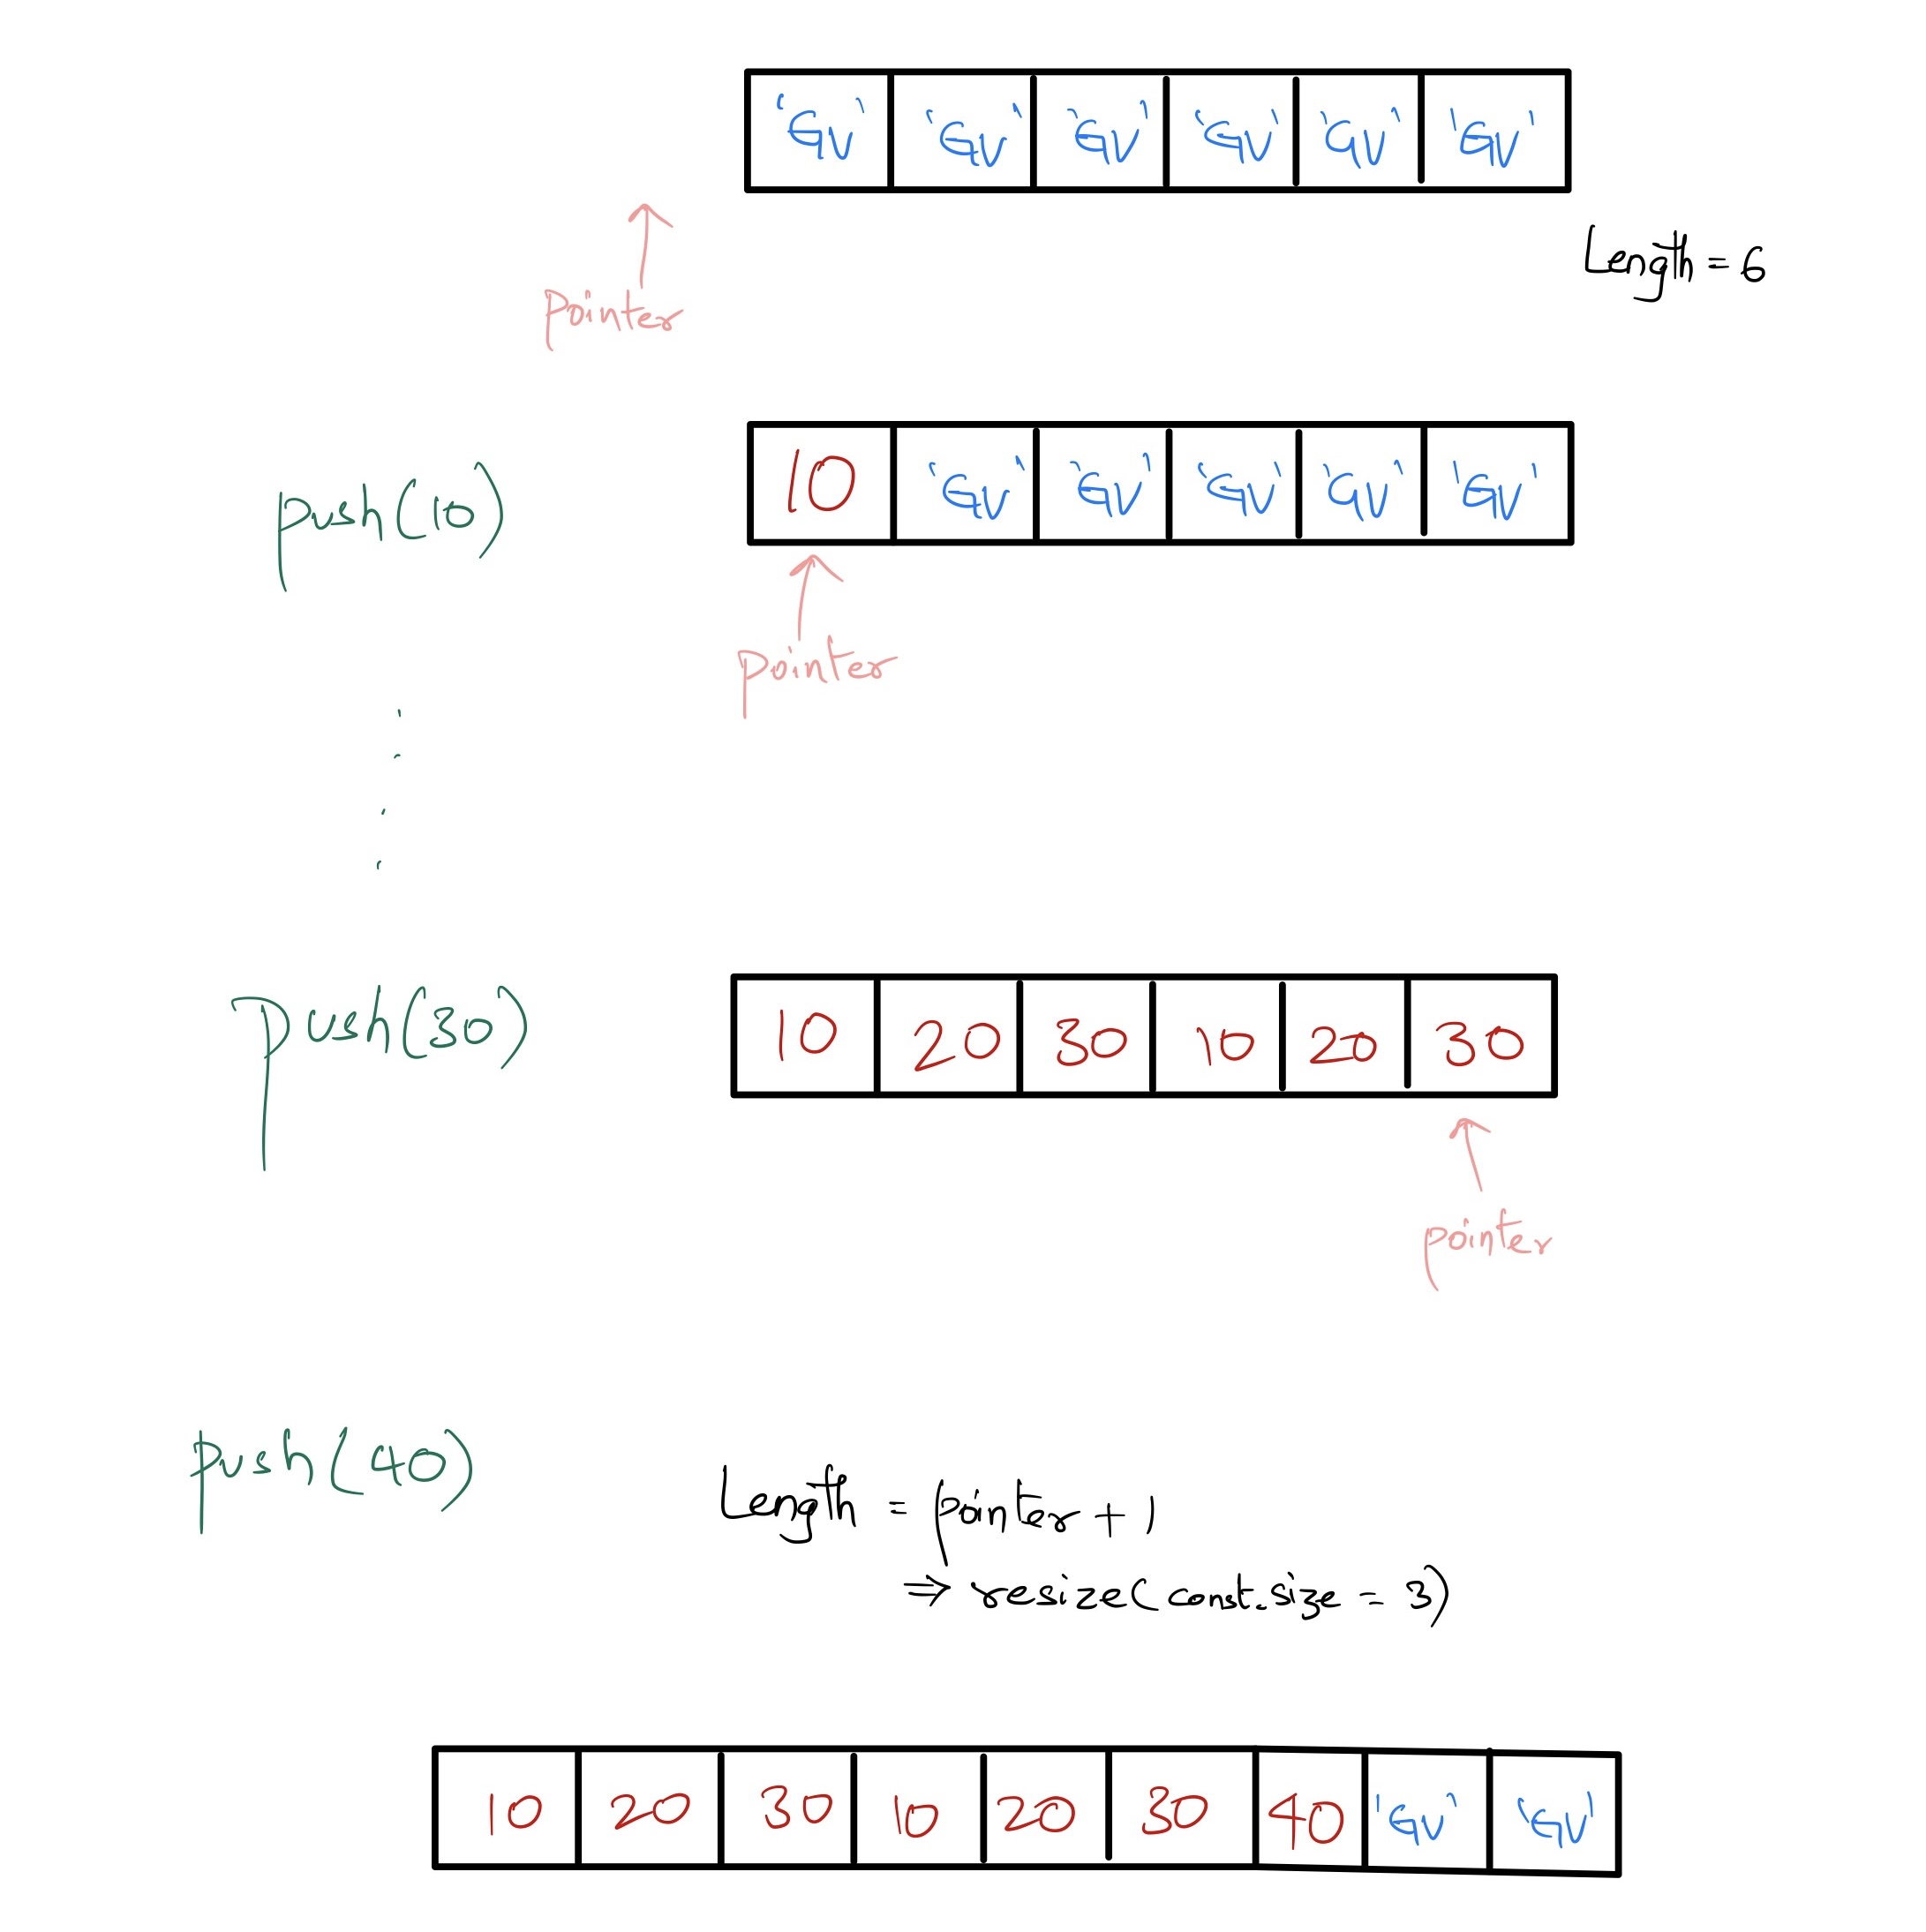 'GV' 'GV' 'GV' 'GV' 'GV' 'GV'
Length = 6
pointer
push(10)
10 'GV' 'GV' 'GV' 'GV' 'GV'
pointer
push(30)
10 20 30 10 20 30
pointer
push(40)
Length = pointer + 1
⇒ resize(cont.size = 3)
10 20 30 10 20 30 40 'GV' 'GV'